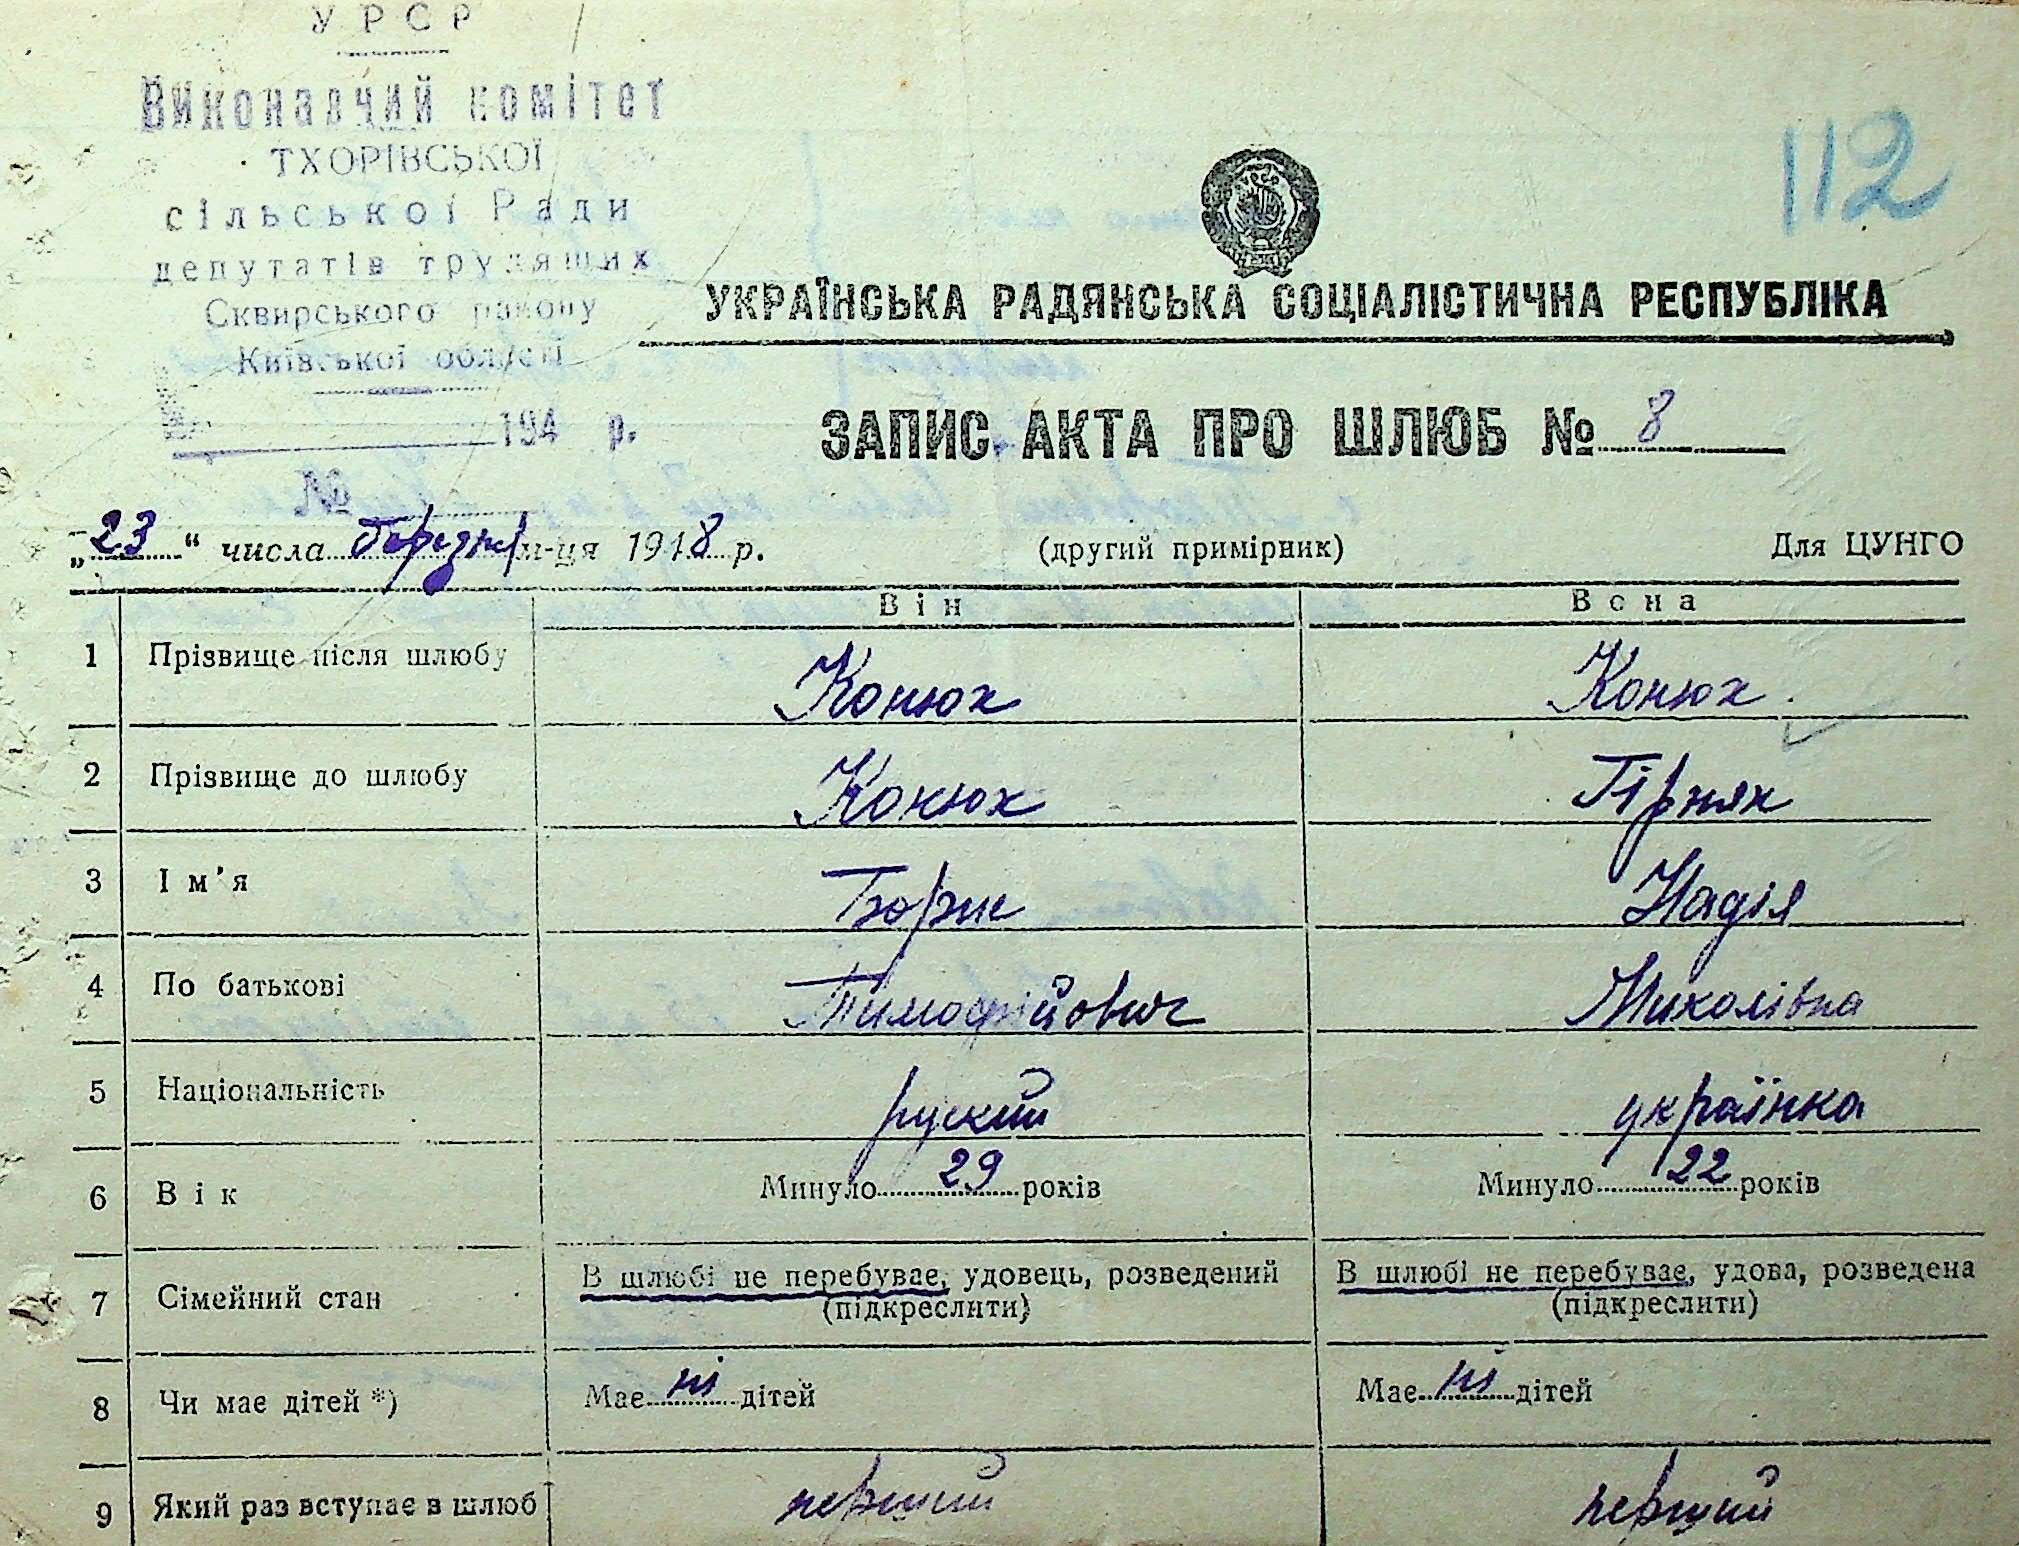 УРСР
Виконавчий комітет
ТХОРІВСЬКОЇ
сільської Ради
депутатів трудящих
Сквирського району
Київської області
194 р.
№
112
УКРАЇНСЬКА РАДЯНСЬКА СОЦІАЛІСТИЧНА РЕСПУБЛІКА
ЗАПИС АКТА ПРО ШЛЮБ № 8
„23“ числа березня м-ця 1948 р. (другий примірник) Для ЦУНГО
Він Вона
1 Прізвище після шлюбу Конюх Конюх
2 Прізвище до шлюбу Конюх Гірняк
3 Ім'я Борис Надія
4 По батькові Тимофійович Миколівна
5 Національність руский українка
6 Вік Минуло 29 років Минуло 22 років
7 Сімейний стан В шлюбі не перебуває, удовець, розведений В шлюбі не перебуває, удова, розведена
(підкреслити) (підкреслити)
8 Чи має дітей *) Має ні дітей Має ні дітей
9 Який раз вступає в шлюб перший перший